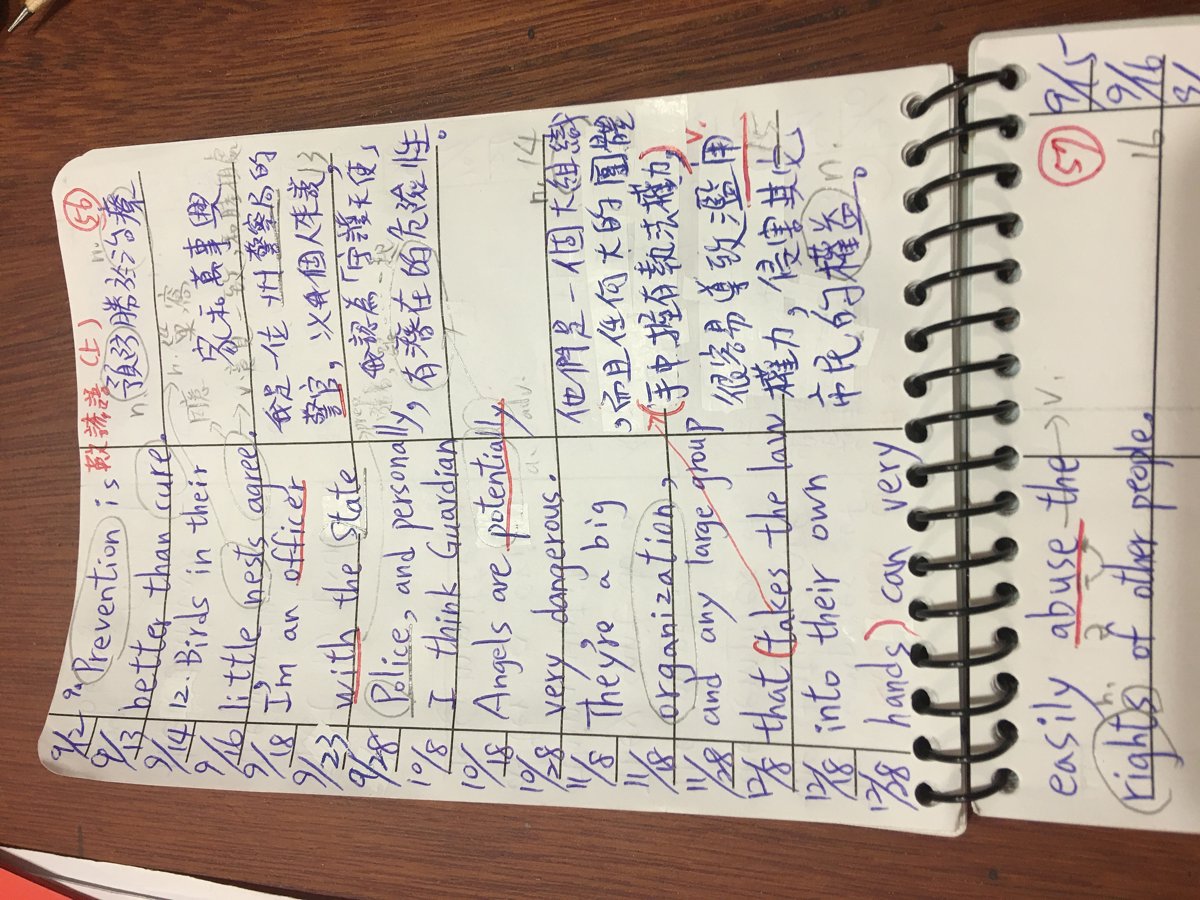 9/12
9/13
9/14
9/16
9/18
9/23
9/28
10/8
10/18
10/28
11/8
11/18
11/28
12/8
12/18
12/28
Prevention is
better than cure.
12. Birds in their
little nests agree.
I'm an officer
with the State
Police, and personally,
I think Guardian
Angels are potentially
very dangerous.
They're a big
organization,
and any large group
that (takes the law
into their own
hands) can very
(上) 56
n. n.
預防勝於治療
n. 巢窩
家和萬事興
我是一位州警察局的
警官,以我個人作裁 13
我認為「守護天使」
有潛在的危險性。
a. adv.
n. 14
他們是一個大組織
,而且任何大的團體
(手中握有執法權力) v.
很容易導致濫用
15
權力,侵害其它
n.
市民的權益。
57
9/15
9/16
easily abuse the → v.
n.
rights of other people.
16